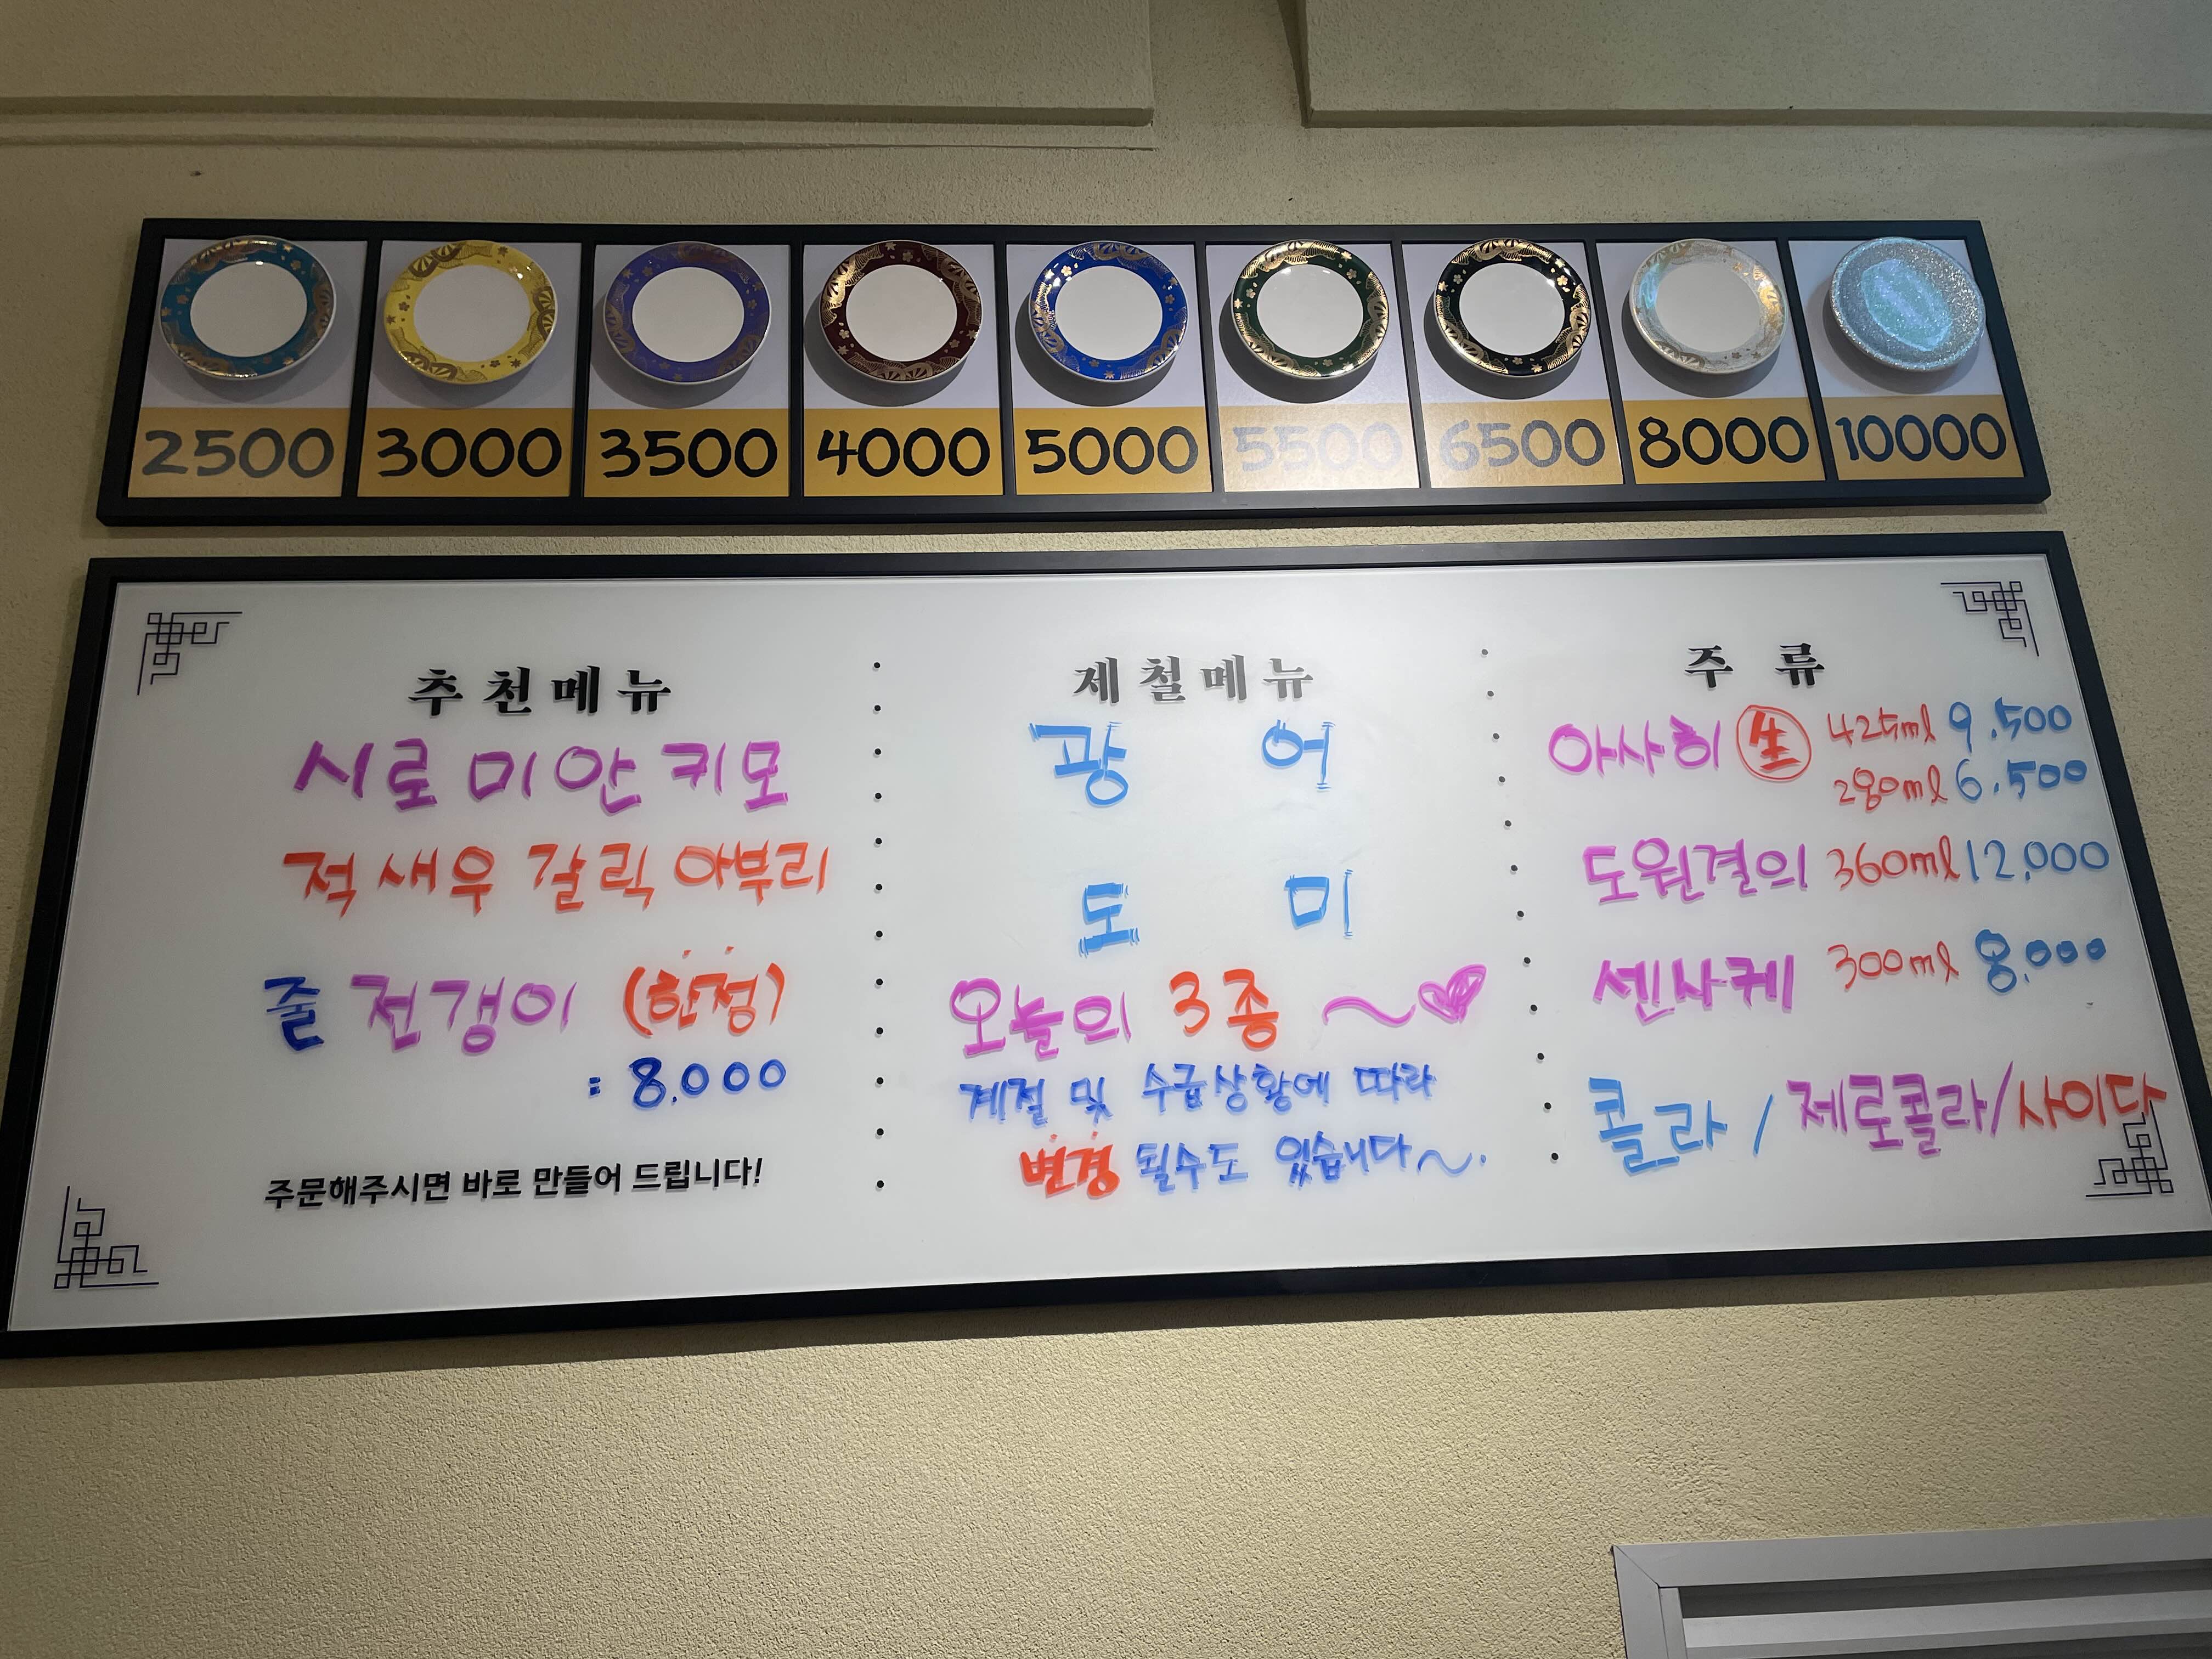 2500 3000 3500 4000 5000 5500 6500 8000 10000
추천메뉴
시로미안키모
적새우 갈릭 아부리
줄전갱이 (한정)
: 8.000
주문해주시면 바로 만들어 드립니다!
제철메뉴
광 어
도 미
오늘의 3종 ~♥
계절 및 수급상황에 따라
변경 될수도 있습니다~.
주 류
아사히 生 425ml 9.500
280ml 6.500
도원결의 360ml 12,000
센사케 300ml 8.000
콜라 / 제로콜라/사이다